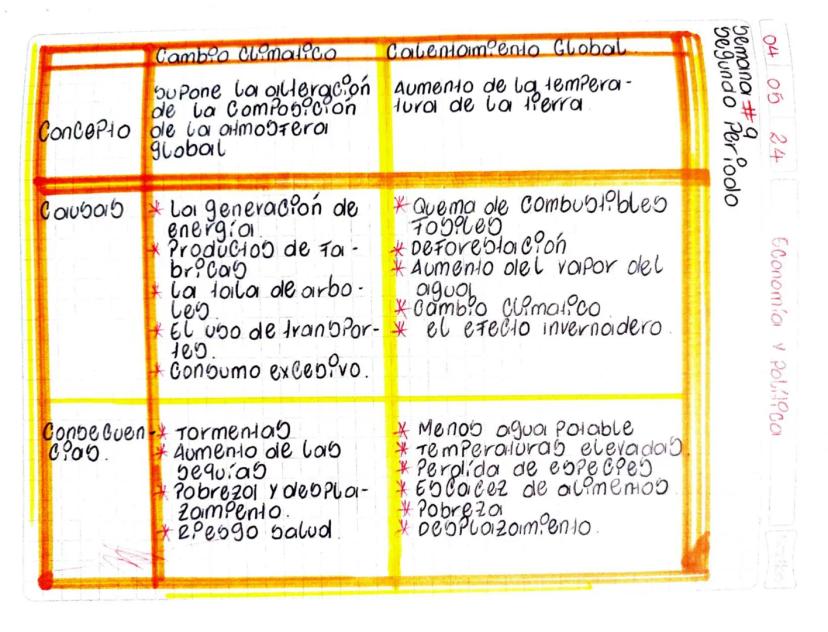 04 05 24
Economía y Política
Semana #9
Segundo Periodo
Cambio Climatico
Calentamiento Global
Concepto
Supone la alteración
de la Composición
de la atmosfera
global
Aumento de la tempera-
tura de la tierra
Causas
* La generación de
energía.
* Productos de fa-
bricas
* La tala de arbo-
les.
* El uso de transpor-
tes.
* Consumo excesivo.
* Quema de combustibles
fosiles
* Deforestación
* Aumento del vapor del
agua
* Cambio Climatico
* el efecto invernadero.
Consecuen-
cias.
* Tormentas
* Aumento de las
sequías
* Pobreza y despla-
zamiento.
* Riesgo salud.
* Menos agua potable
* Temperaturas elevadas.
* Perdida de especies
* Escacez de alimentos.
* Pobreza
* Desplazamiento.